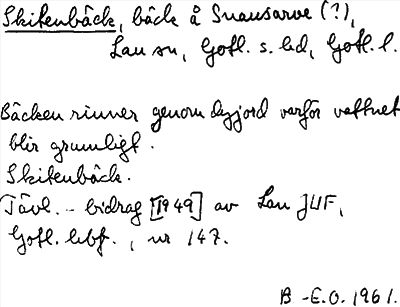 Skitenbäck, bäck å Snausarve (?),
Lau sn, Gotl. s. hd, Gotl. l.
Bäcken rinner genom dyjord varför vattnet
blir grumligt.
Skitenbäck.
Tävl.-bidrag [1949] av Lau JUF,
Gotl. hbf., nr 147.
B-E.O. 1961.